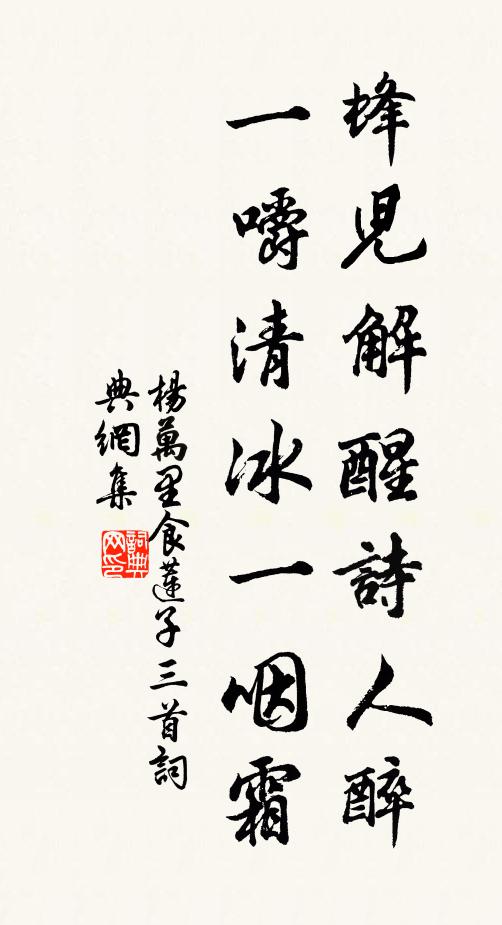 蜂兒解醒詩人醉
一嚼清冰一咽霜
楊萬里食蓮子三首詞
典網集
詞典
网印